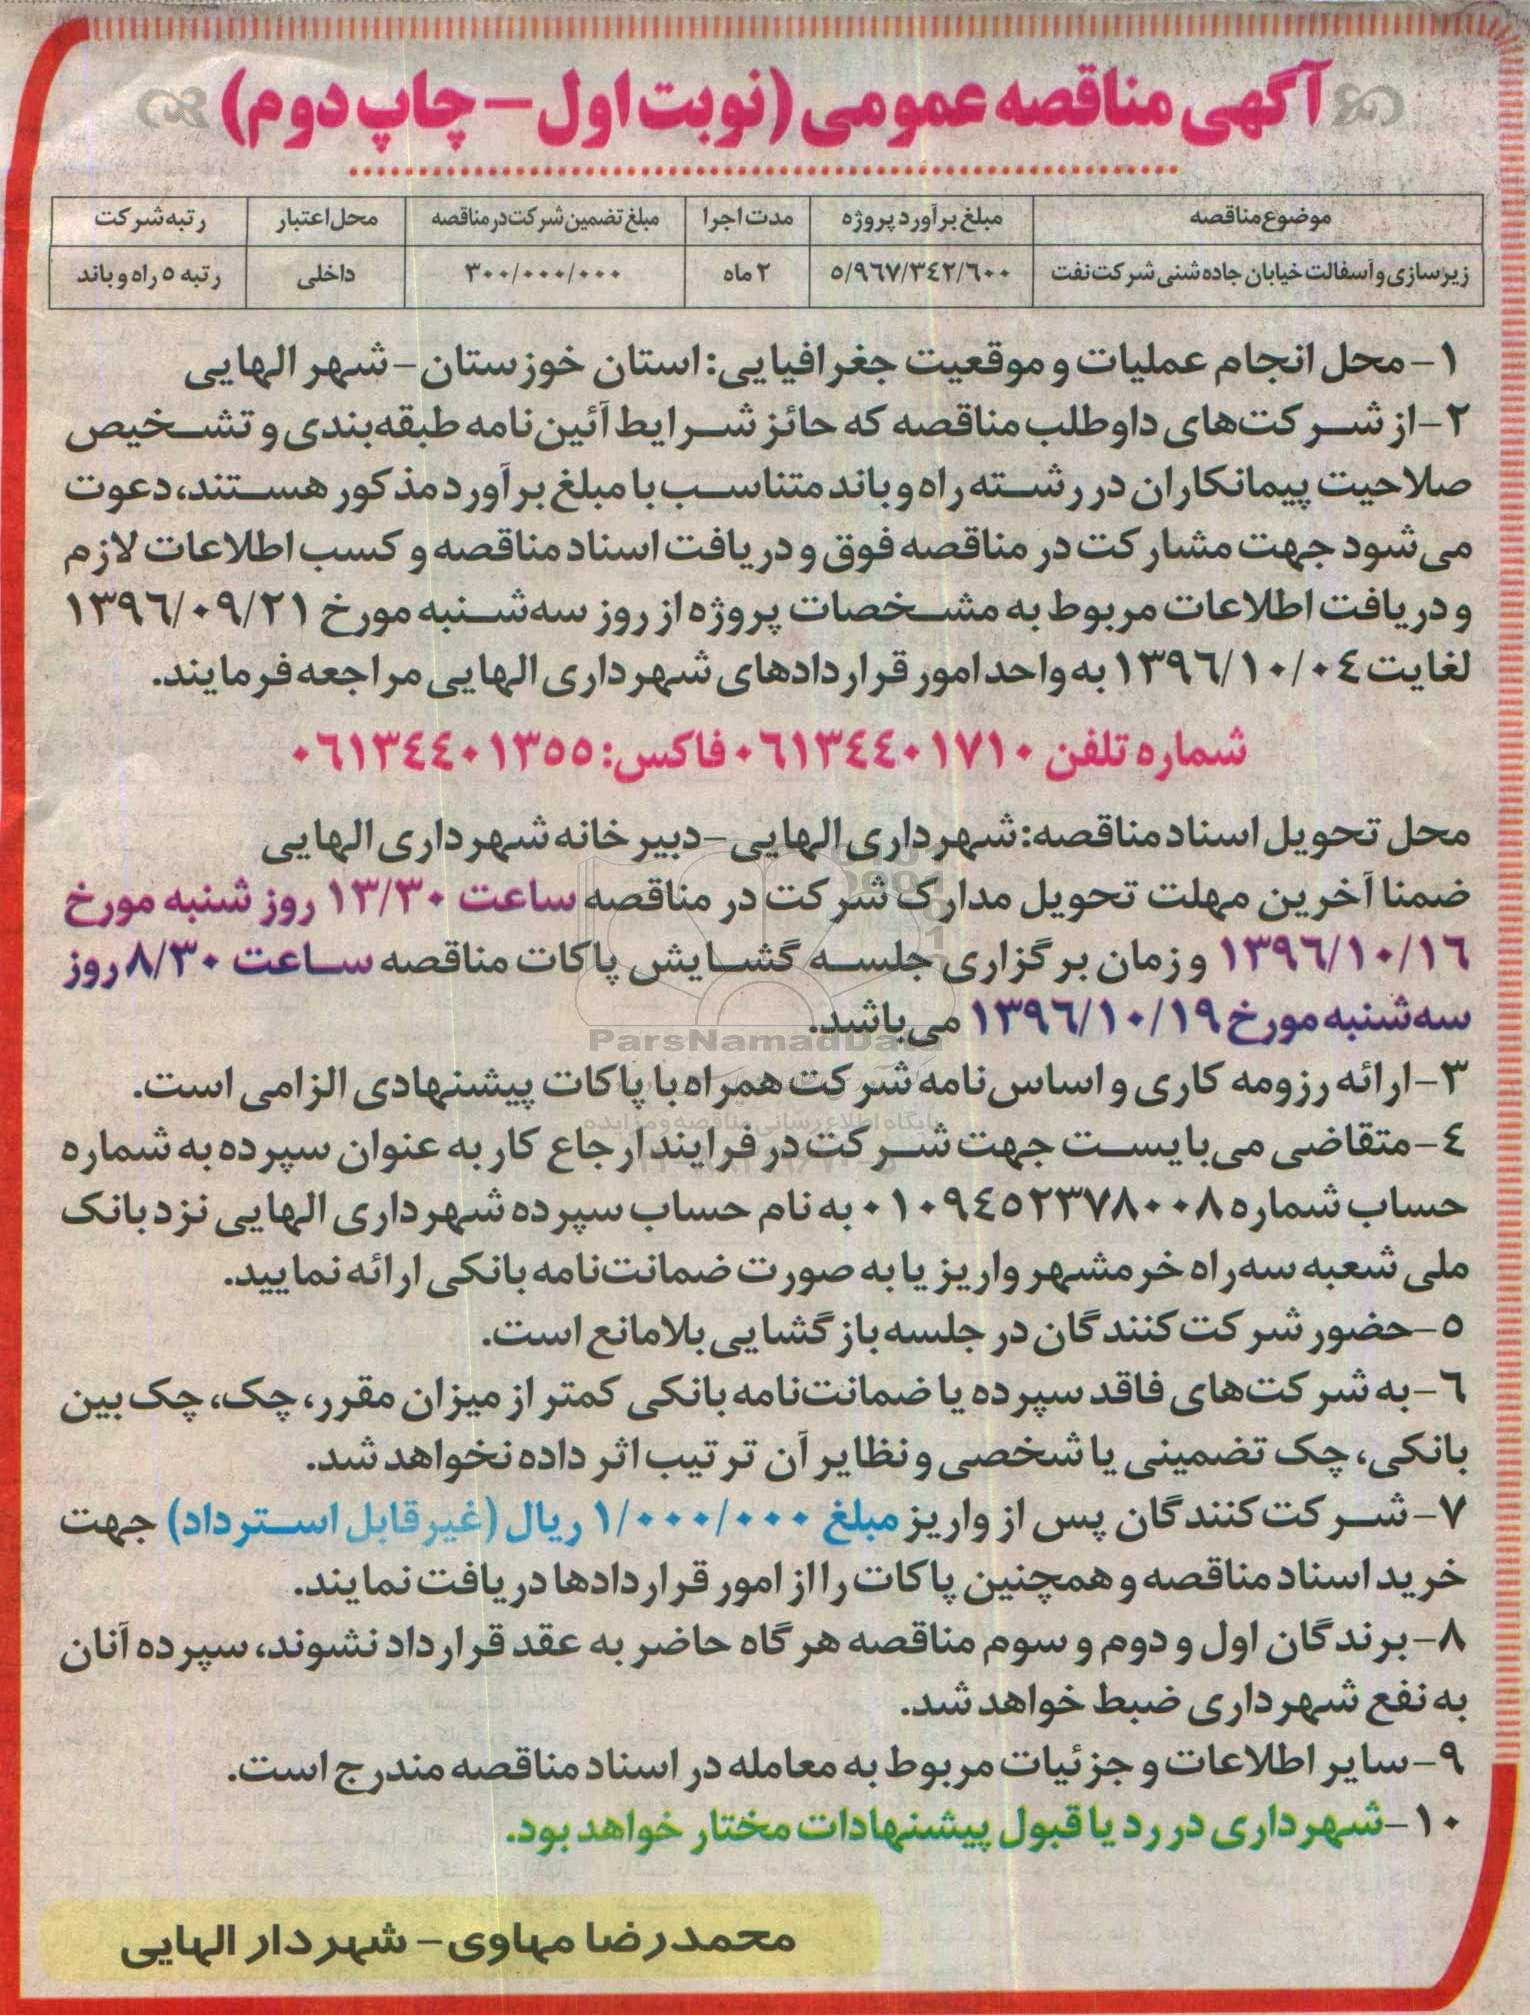 آگهی مناقصه عمومی (نوبت اول – چاپ دوم)
موضوع مناقصه | مبلغ برآورد پروژه | مدت اجرا | مبلغ تضمین شرکت در مناقصه | محل اعتبار | رتبه شرکت
زیرسازی و آسفالت خیابان جاده شنی شرکت نفت | ۵/۹۶۷/۳۴۲/۶۰۰ | ۲ ماه | ۳۰۰/۰۰۰/۰۰۰ | داخلی | رتبه ۵ راه و باند
۱- محل انجام عملیات و موقعیت جغرافیایی: استان خوزستان - شهر الهایی
۲- از شرکت‌های داوطلب مناقصه که حائز شرایط آئین‌نامه طبقه‌بندی و تشخیص
صلاحیت پیمانکاران در رشته راه و باند متناسب با مبلغ برآورد مذکور هستند، دعوت
می‌شود جهت مشارکت در مناقصه فوق و دریافت اسناد مناقصه و کسب اطلاعات لازم
و دریافت اطلاعات مربوط به مشخصات پروژه از روز سه‌شنبه مورخ ۱۳۹۶/۰۹/۲۱
لغایت ۱۳۹۶/۱۰/۰۴ به واحد امور قراردادهای شهرداری الهایی مراجعه فرمایند.
شماره تلفن ۰۶۱۳۴۴۰۱۷۱۰ فاکس: ۰۶۱۳۴۴۰۱۳۵۵
محل تحویل اسناد مناقصه: شهرداری الهایی - دبیرخانه شهرداری الهایی
ضمنا آخرین مهلت تحویل مدارک شرکت در مناقصه ساعت ۱۳/۳۰ روز شنبه مورخ
۱۳۹۶/۱۰/۱۶ و زمان برگزاری جلسه گشایش پاکات مناقصه ساعت ۸/۳۰ روز
سه‌شنبه مورخ ۱۳۹۶/۱۰/۱۹ می‌باشد.
ParsNamadData
۳- ارائه رزومه کاری و اساس‌نامه شرکت همراه با پاکات پیشنهادی الزامی است.
پایگاه اطلاع رسانی مناقصه و مزایده
۴- متقاضی می‌بایست جهت شرکت در فرایند ارجاع کار به عنوان سپرده به شماره
حساب شماره ۰۱۰۹۴۵۲۳۷۸۰۰۸ به نام حساب سپرده شهرداری الهایی نزد بانک
ملی شعبه سه‌راه خرمشهر واریز یا به صورت ضمانت‌نامه بانکی ارائه نمایید.
۵- حضور شرکت کنندگان در جلسه بازگشایی بلامانع است.
۶- به شرکت‌های فاقد سپرده یا ضمانت‌نامه بانکی کمتر از میزان مقرر، چک، چک بین
بانکی، چک تضمینی یا شخصی و نظایر آن ترتیب اثر داده نخواهد شد.
۷- شرکت کنندگان پس از واریز مبلغ ۱/۰۰۰/۰۰۰ ریال (غیرقابل استرداد) جهت
خرید اسناد مناقصه و همچنین پاکات را از امور قراردادها دریافت نمایند.
۸- برندگان اول و دوم و سوم مناقصه هرگاه حاضر به عقد قرارداد نشوند، سپرده آنان
به نفع شهرداری ضبط خواهد شد.
۹- سایر اطلاعات و جزئیات مربوط به معامله در اسناد مناقصه مندرج است.
۱۰- شهرداری در رد یا قبول پیشنهادات مختار خواهد بود.
محمدرضا مهاوی - شهردار الهایی